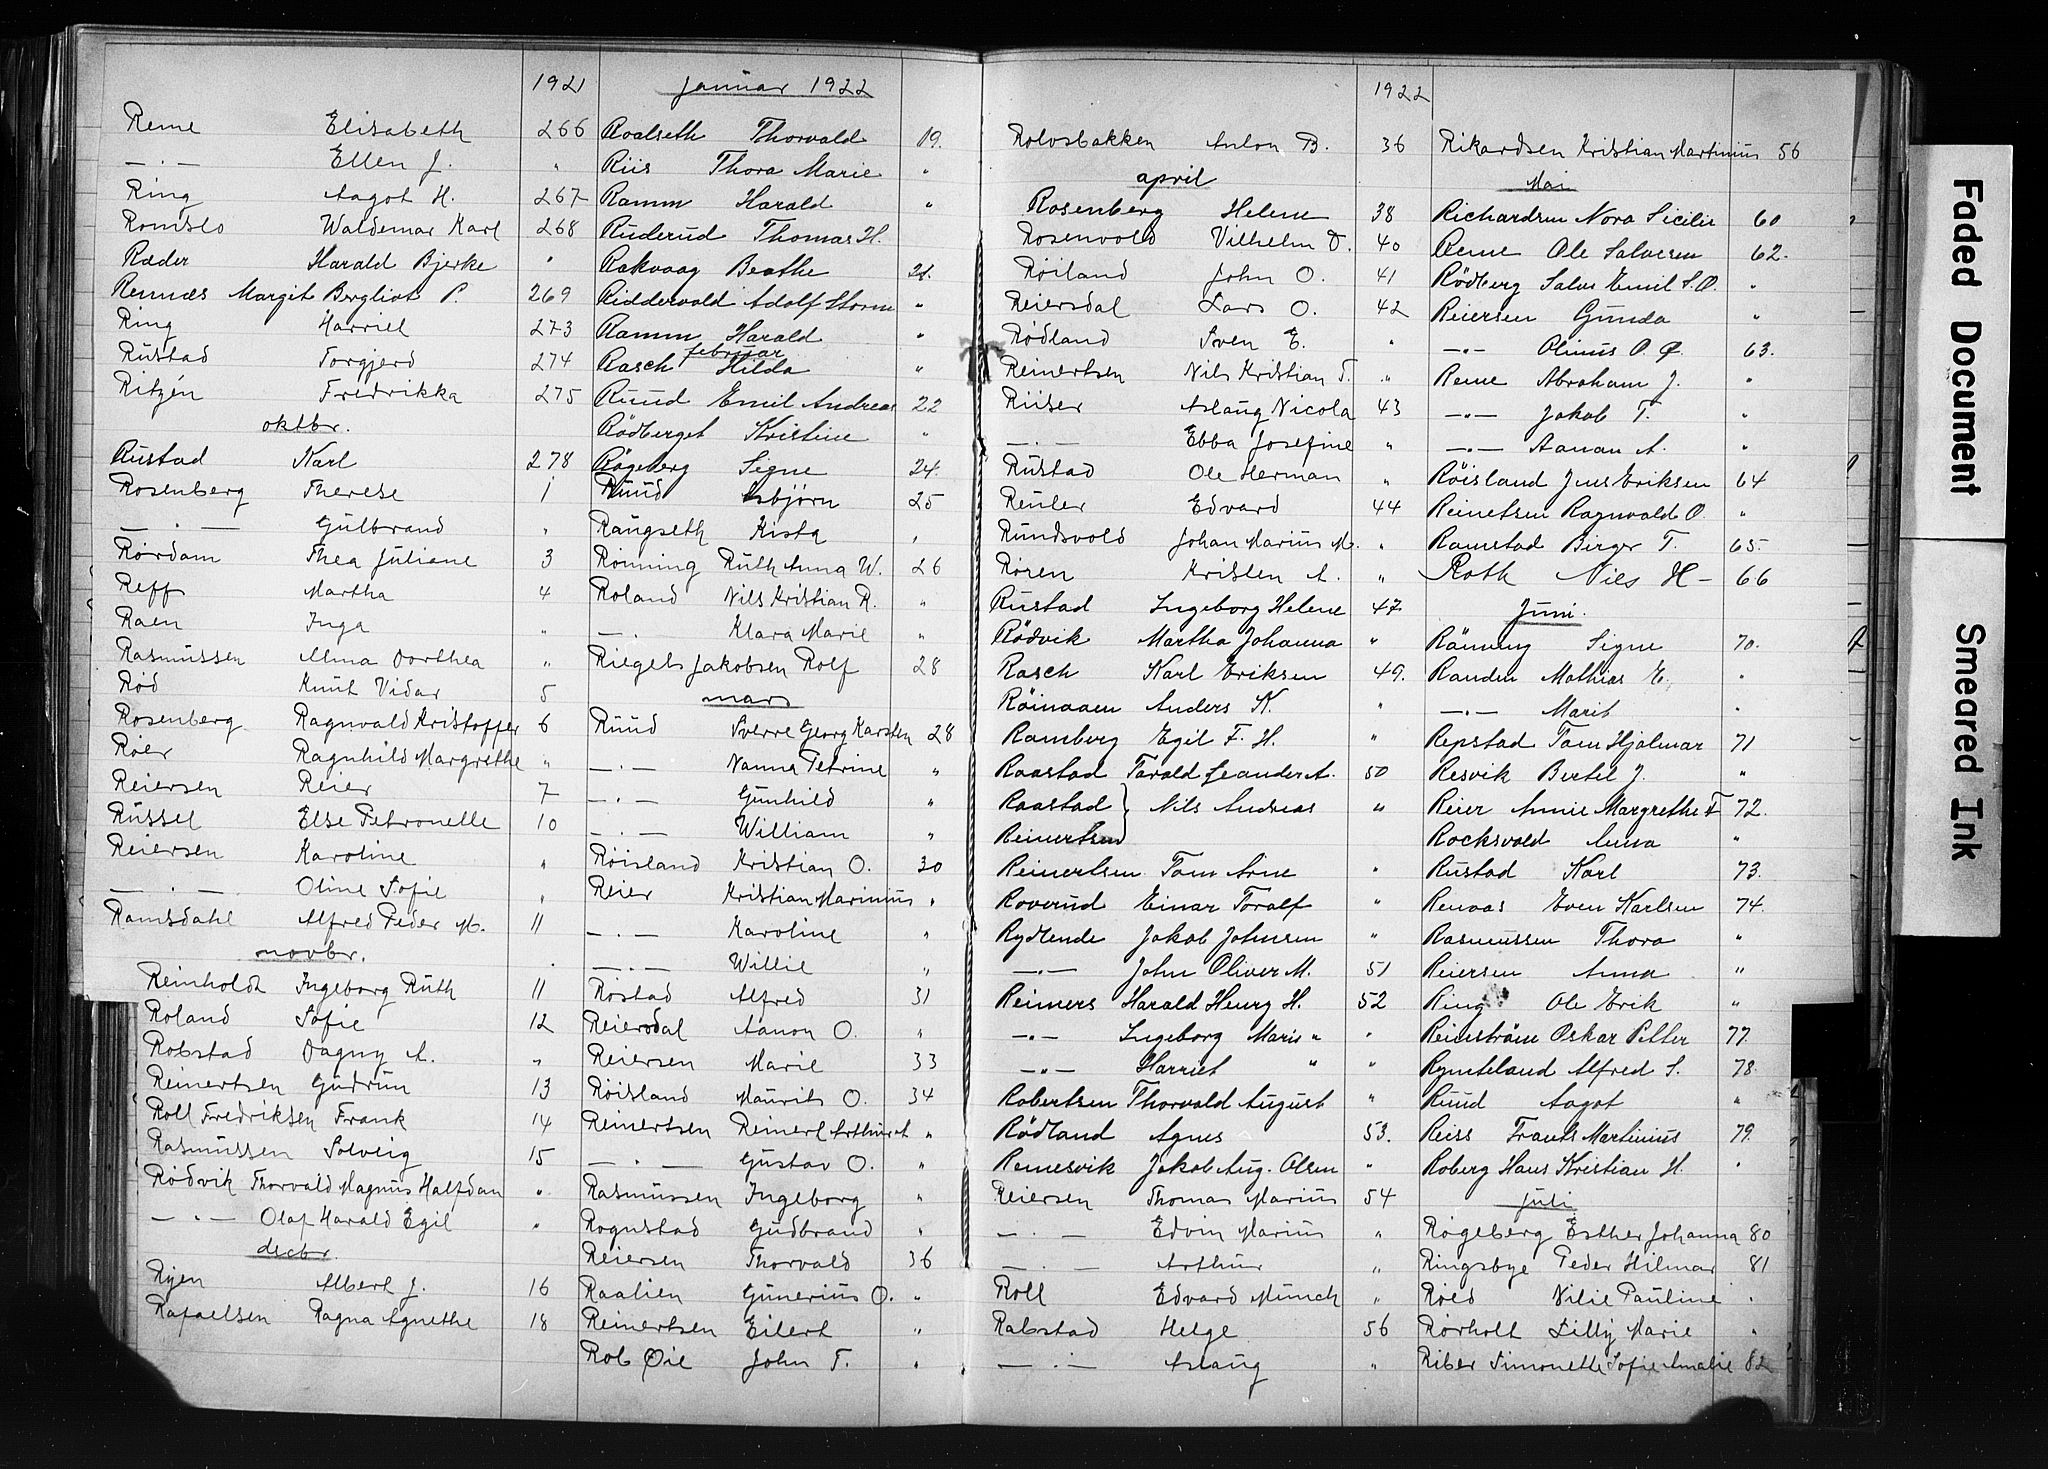 1921
Reme Elisabeth 266
— " — Ellen J. "
Ring Aagot H. 267
Romslo Waldemar Karl 268
Ræder Harald Bjerke "
Rennæs Margit Bergliot P. 269
Ring Harriet 273
Rustad Torgjerd 274
Ritzén Fredrikka 275
oktbr.
Rustad Karl 278
Rosenberg Therese 1
— " — Gulbrand "
Rørdam Thea Juliane 3
Reff Martha 4
Raen Inga "
Rasmussen Alma Dorthea "
Rød Knut Vidar 5
Rosenberg Ragnvald Kristoffer 6
Røer Ragnhild Margrethe "
Reiersen Reier 7
Russel Else Petronelle 10
Reiersen Karoline "
— " — Oline Sofie "
Ramsdahl Alfred Peder M. 11
novbr.
Reinholdt Ingeborg Ruth 11
Roland Sofie 12
Robstad Dagny A. "
Reinertsen Gudrun 13
Roll Fredriksen Frank 14
Rasmussen Solveig 15
Rødvik Thorvald Magnus Halfdan "
— " — Olaf Harald Egil "
decbr.
Rijen Albert J. 16
Rafaelsen Ragna Agnethe 18
Januar 1922
Roalseth Thorvald 19.
Riis Thora Marie "
Ramm Harald "
Ruderud Thomas H.
Rakvaag Beathe 21.
Riddervold Adolf Storm "
Ramm Harald "
februar
Rasch Hilda "
Ruud Emil Andreas 22
Rödberget Kristine "
Rögeberg Signe 24.
Ruud Asbjørn 25
Raugseth Kista "
Rønning Ruth Anna W. 26
Roland Nils Kristian R. "
— " Klara Marie "
Riegels Jakobsen Rolf 28
mars
Ruud Sverre Georg Karsten 28
— " — Nanna Petrine "
— " — Gunhild "
— " — William "
Røisland Kristian O. 30
Reier Kristian Marinius "
— " — Karoline "
— " — Willie "
Rostad Alfred 31
Reiersdal Aanon O. "
Reiersen Marie 33
Røisland Maurits O. 34
Reinertsen Reinert Arthur A "
— " — Gustav O. "
Rasmussen Ingeborg "
Rognstad Gudbrand "
Reiersen Thorvald 36
Raalien Gunerius O. "
Reinertsen Eilert "
Rob Øie John T. "
1922
Rolvsbakken Anton B. 36
april
Rosenberg Helene 38
Rosenvold Vilhelm D. 40
Røiland John O. 41
Reiersdal Lars O. 42
Rødland Sven E. "
Reinertsen Nils Kristian T. "
Riiser Aslaug Nicola 43
— " — Ebba Josefine "
Rustad Ole Herman "
Reuler Edvard 44
Rundsvold Johan Marius M. "
Røren Kristen A. "
Rustad Ingeborg Helene 47
Rödvik Martha Johanna "
Rasch Karl Eriksen 49.
Röinaaen Anders K. "
Ramberg Egil F. H. "
Raastad Tarald Leander A. 50
Raastad } Nils Andreas "
Reinertsen
Reinertsen Tom Arne "
Roverud Einar Toralf "
Rydlende Jakob Johnsen "
— " — John Oliver M. 51
Reimers Harald Henry H. 52
— " — Ingeborg Marie " "
— " — Harriet " "
Robertsen Thorvald August "
Rödland Agnes 53.
Remesvik Jakob Aug. Olsen "
Reiersen Thomas Marius 54
— " — Edvin Marius "
— " — Arthur "
Roll Edvard Munch "
Rabstad Helge 56
— " — Aslaug "
Rikardsen Kristian Martinius 56
Mai
Richardsen Nora Sicilie 60
Reme Ole Salvesen 62.
Rödberg Salve Emil S.O. "
Reiersen Gunda "
— " — Olinus O. Ø. 63.
Reme Abraham J. "
— " — Jakob T. "
— " — Aanan A. "
Röisland Jens Eriksen 64
Reinetsen Ragnvald O. "
Ramstad Birger T. 65.
Roth Nils H — 66
Juni.
Rönning Signe 70.
Randen Mathias E. "
— " — Marit "
Repstad Tom Hjalmar 71
Resvik Bertel J. "
Reier Annie Margrethe F 72.
Rocksvold Anna "
Rustad Karl 73.
Renaas Even Karlsen 74.
Rasmussen Thora "
Reiersen Anna "
Ring Ole Erik "
Reinström Oskar Petter 77.
Rynteland Alfred S. 78.
Ruud Aagot "
Reiss Frants Martinius 79.
Roberg Hans Kristian H. "
juli
Røgeberg Esther Johanna 80
Ringsbye Peder Hilmar 81
Røed Nilie Pauline "
Rørholt Lilly Marie "
Riber Simonette Sofie Amalie 82
Faded Document
Smeared Ink